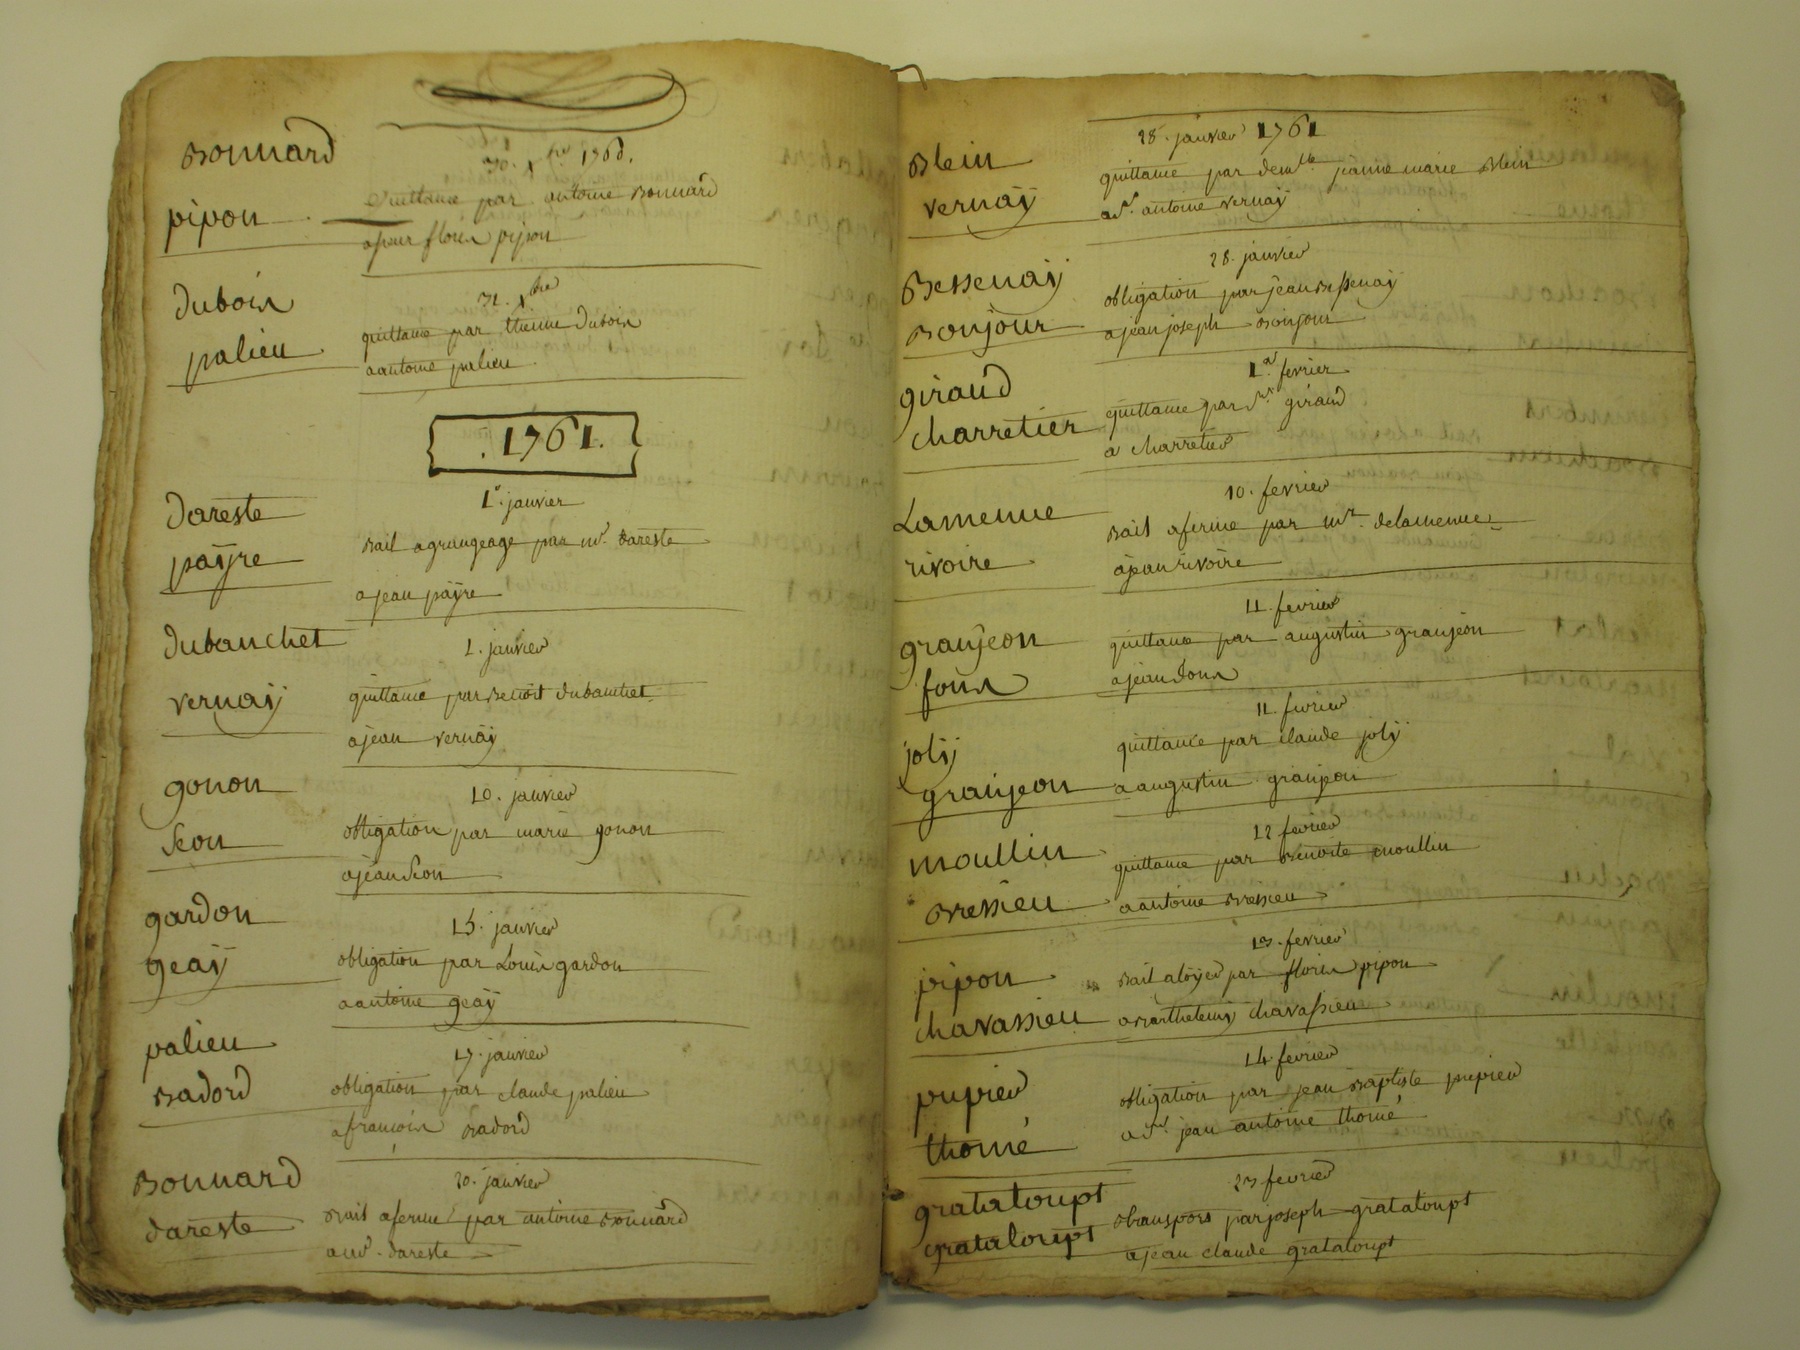 Bonnard
pipon
30. xbre 1760.
Quittance par antoine Bonnard
a sieur fleurs pipon
Dubois
palieu
31. xbre
quittance par ttienne Dubois
a antoine palieu
1761.
Dareste
paÿre
1r. janvier
Bail a grangeage par mr. Dareste
a jean paÿre
Dubanchet
vernaÿ
1. janvier
quittance par Benoit Dubanchet
a jean vernaÿ
gonon
Seon
10. janvier
obligation par marie gonon
a jean Seon
gardon
geaÿ
15. janvier
obligation par Louis gardon
a antoine geaÿ
palieu
Badord
17. janvier
obligation par claude palieu
a francois Badord
Bonnard
dareste
20. janvier
Bail a ferme par antoine Bonnard
a mr. dareste
Blein
vernaÿ
28. janvier 1761
quittance par demlle. jeanne marie Blein
a Sr. antoine vernaÿ
Bessenaÿ
Bonjour
28. janvier
obligation par jean Bessenaÿ
a jean joseph Bonjour
giraud
charretier
1er fevrier
quittance par Sr. giraud
a charretier
Lamenue
rivoire
10. fevrier
Bail a ferme par mr. delamenue
a jean rivoire
granjeon
fours
11. fevrier
quittance par augustin granjeon
a jean
jolÿ
granjeon
11. fevrier
quittance par claude jolÿ
a augustin granjeon
moullin
Bressieu
12 fevrier
quittance par Benoiste moullin
a antoine Bressieu
pipon
chavassieu
13. fevrier
Bail a loÿer par floris pipon
a Barthelemy chavassieu
pupier
thomé
14. fevrier
obligation par jean Baptiste pupier
a Sr. jean antoine thomé
grataloupt
grataloupt
23 fevrier
transport par joseph grataloupt
a jean claude grataloupt